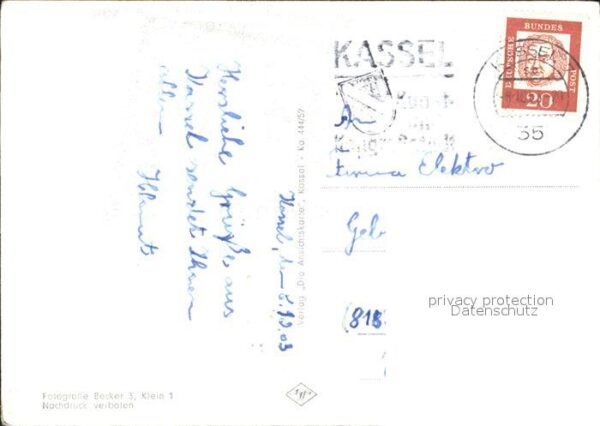 Herzliche Grüße aus
Kassel sendet Ihnen
allen Helmut
Kassel, den 8.10.63
Verlag „Die Ansichtskarte", Kassel - Ka 444/59
KASSEL
DEUTSCHE BUNDESPOST
20
KASSEL
35
An
Firma Elektro
Geb
(813
privacy protection
Datenschutz
Fotografie Becker 3, Klein 1
Nachdruck verboten